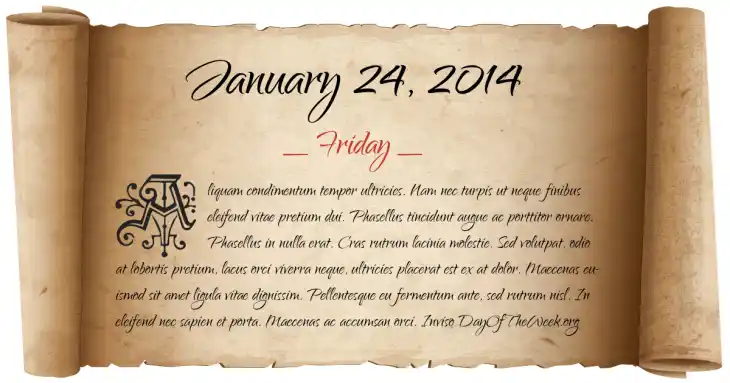 January 24, 2014
_ Friday _
Aliquam condimentum tempor ultricies. Nam nec turpis ut neque finibus
eleifend vitae pretium dui. Phasellus tincidunt augue ac porttitor ornare.
Phasellus in nulla erat. Cras rutrum lacinia molestie. Sed volutpat, odio
at lobortis pretium, lacus orci viverra neque, ultricies placerat est ex at dolor. Maecenas eu-
ismod sit amet ligula vitae dignissim. Pellentesque eu fermentum ante, sed rutrum nisl. In
eleifend nec sapien et porta. Maecenas ac accumsan orci. Inviso DayOfTheWeek.org